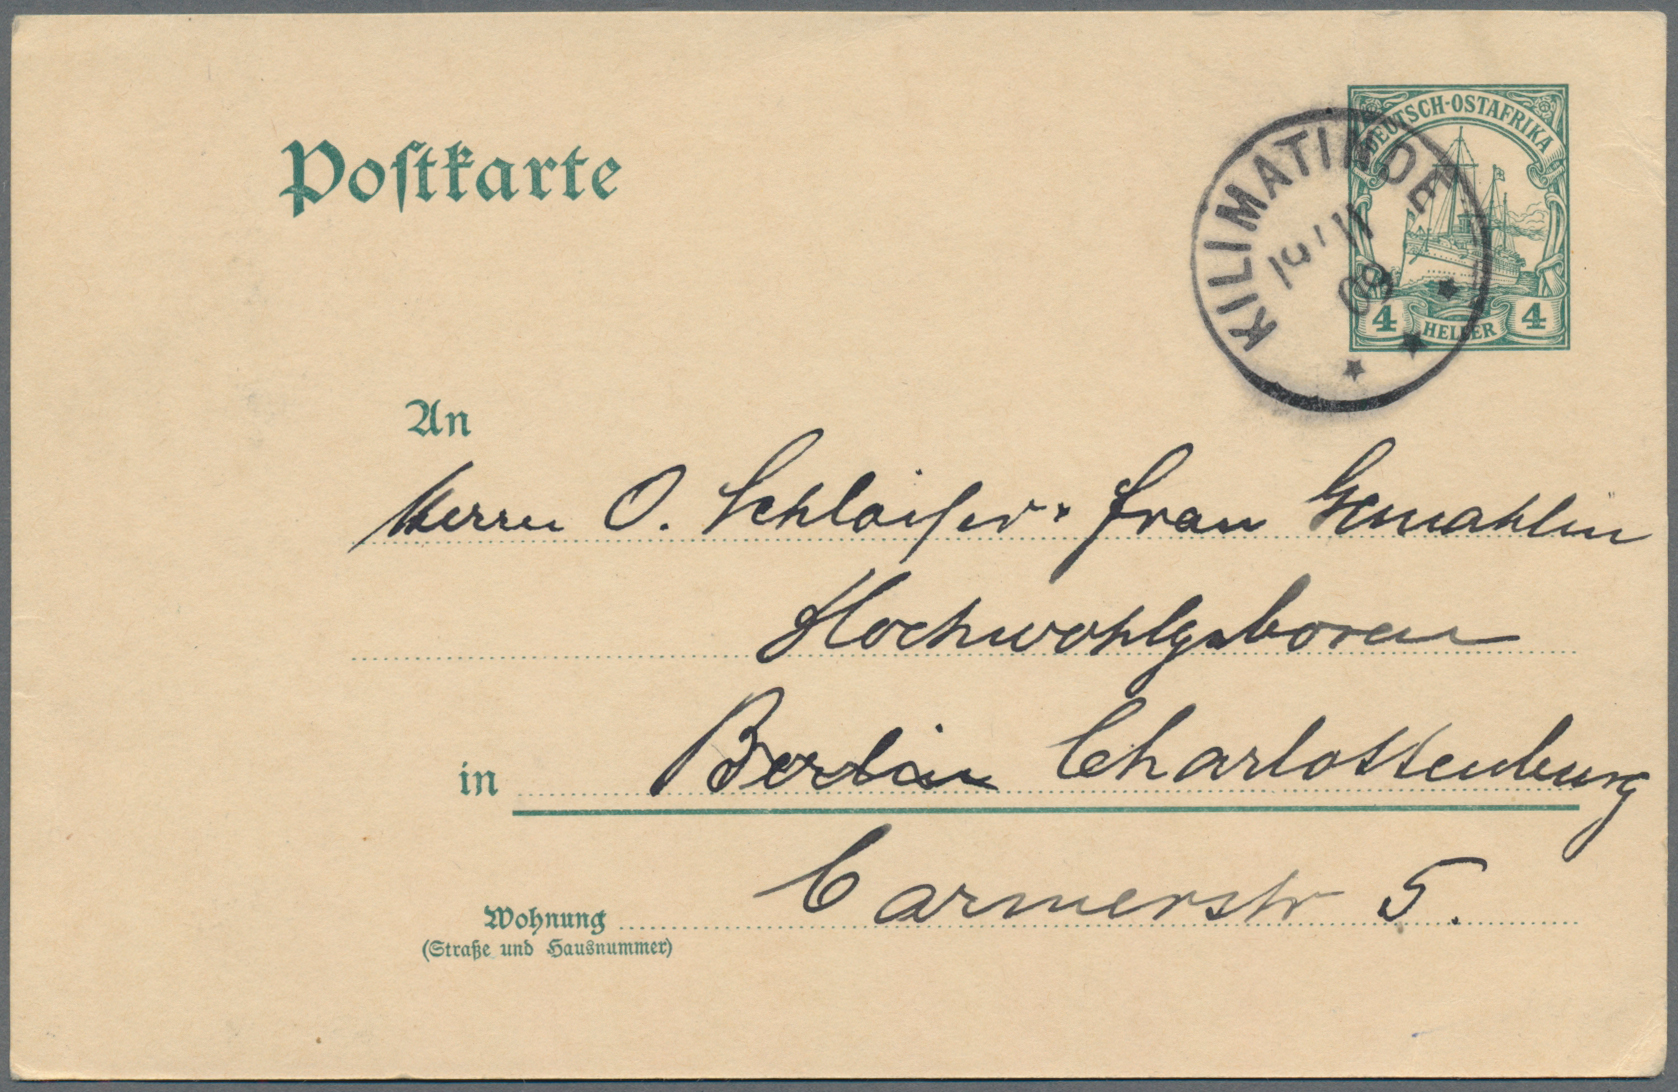 Postkarte
DEUTSCH-OSTAFRIKA
4 HELLER 4
KILIMATINDE
19/11
09
An
Herrn O. Schloifer. Frau Gemahlin
Hochwohlgeboren
in Berlin Charlottenburg
Carmerstr 5.
Wohnung
(Straße und Hausnummer)